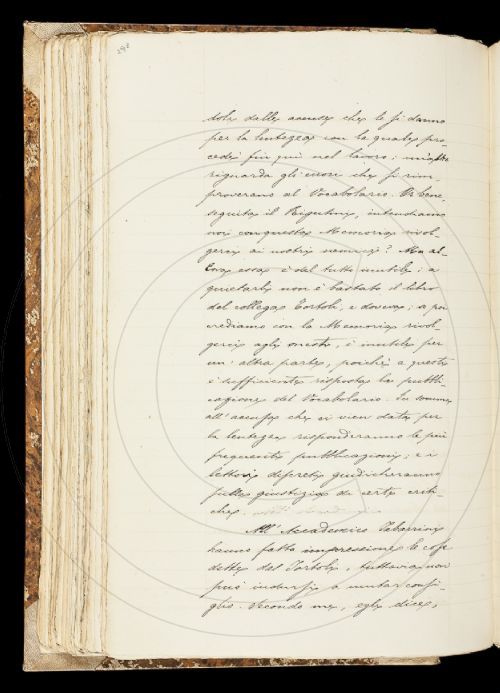 298
dola dalle accuse che le si danno
per la lentezza con la quale pro-
cede fin qui nel lavoro; un'altra
riguarda gli errori che si rim-
proverano al Vocabolario. Or bene,
seguita il Rigutini, intendiamo
noi con questa Memoria rivol-
gerci ai nostri nemici? Ma al-
lora essa è del tutto inutile: a
quietarli non è bastato il libro
del collega Tortoli, e doveva; se poi
crediamo con la Memoria rivol-
gerci agli onesti, è inutile per
un'altra parte, poiché a questi
è sufficiente risposta la pubbli-
cazione del Vocabolario. In somma
all'accusa che ci vien data per
la lentezza risponderanno le più
frequenti pubblicazioni; e i
lettori discreti giudicheranno
sulla giustizia di certe criti-
che.
All'Accademico Tabarrini
hanno fatto impressione le cose
dette dal Tortoli, tuttavia non
può indursi a mutar consi-
glio. Secondo me, egli dice,